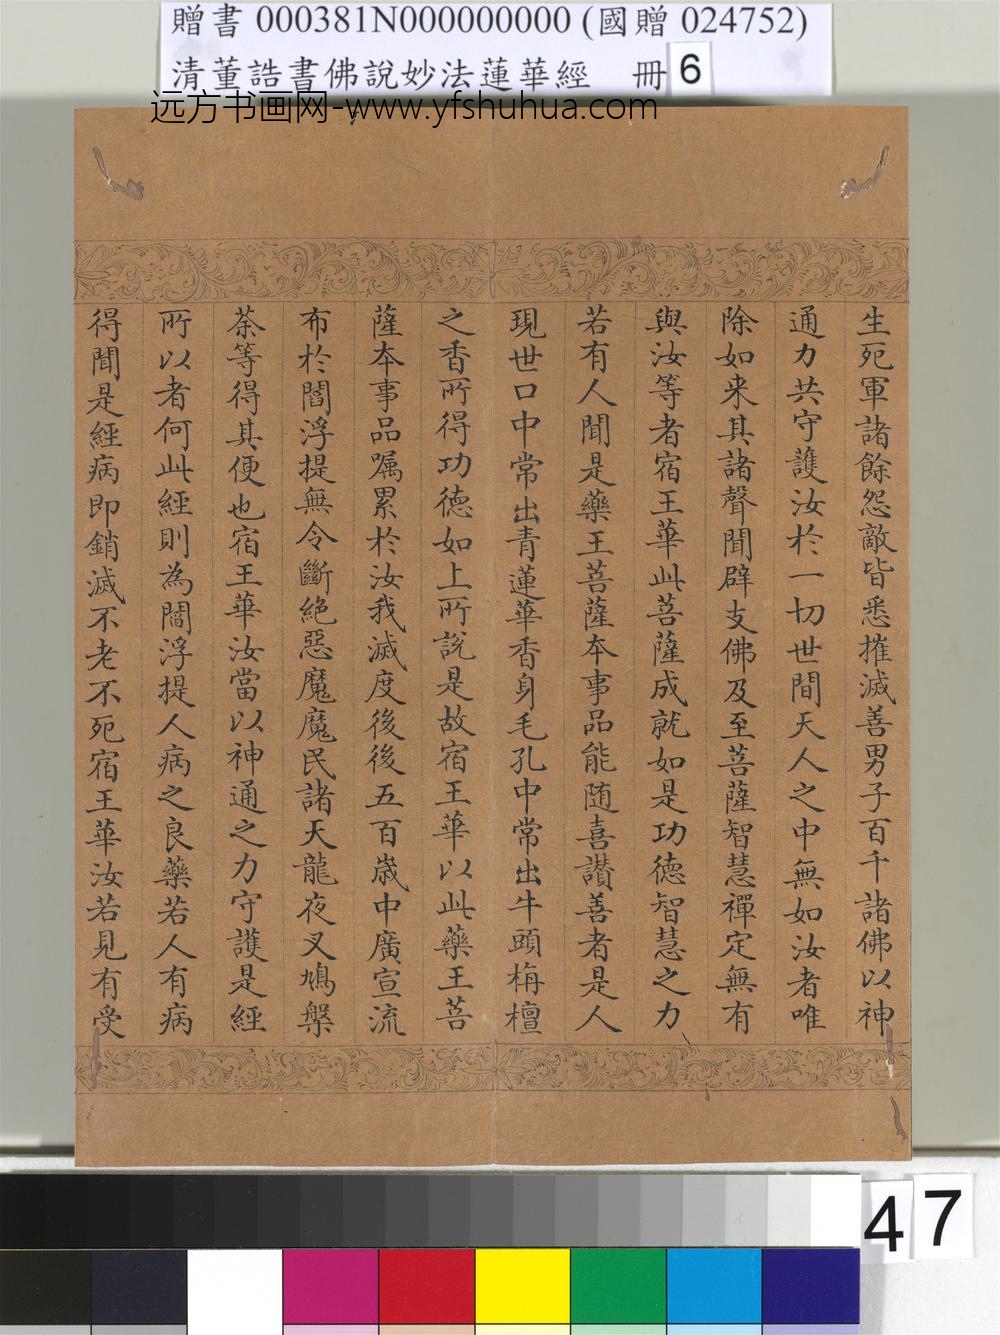 贈書 000381N000000000 (國贈 024752)
清董誥書佛說妙法蓮華經 冊 6
远方书画网-www.yfshuhua.com
生死軍諸餘怨敵皆悉摧滅善男子百千諸佛以神
通力共守護汝於一切世間天人之中無如汝者唯
除如来其諸聲聞辟支佛及至菩薩智慧禪定無有
與汝等者宿王華此菩薩成就如是功德智慧之力
若有人聞是藥王菩薩本事品能随喜讃善者是人
現世口中常出青蓮華香身毛孔中常出牛頭栴檀
之香所得功德如上所說是故宿王華以此藥王菩
薩本事品嘱累於汝我滅度後後五百歲中廣宣流
布於閻浮提無令斷絕惡魔魔民諸天龍夜叉鳩槃
荼等得其便也宿王華汝當以神通之力守護是經
所以者何此經則為閻浮提人病之良藥若人有病
得聞是經病即銷滅不老不死宿王華汝若見有受
47